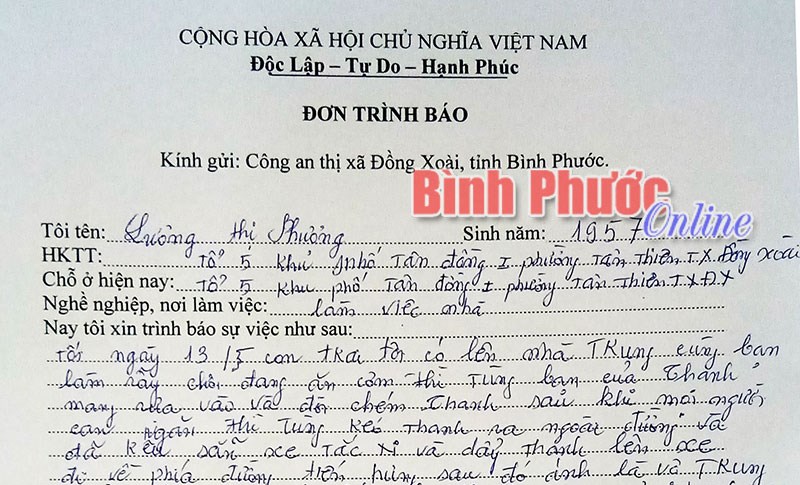 CỘNG HÒA XÃ HỘI CHỦ NGHĨA VIỆT NAM
Độc Lập – Tự Do – Hạnh Phúc
ĐƠN TRÌNH BÁO
Kính gửi: Công an thị xã Đồng Xoài, tỉnh Bình Phước.
Bình Phước Online
Tôi tên: Lương thị Phương Sinh năm: 1957
HKTT: Tổ 5 khu phố Tân đồng I phường Tân Thiện T.X. Đồng xoài
Chỗ ở hiện nay: Tổ 5 khu phố Tân đồng I phường Tân Thiện T.X Đ.X
Nghề nghiệp, nơi làm việc: làm việc nhà
Nay tôi xin trình báo sự việc như sau:
tối ngày 13/5 con trai tôi có lên nhà TRung cùng bạn
làm rẫy chơi đang ăn cơm thì Tùng bạn của Thanh
mang rựa vào và đòi chém Thanh sau khi mọi người
can ngăn thì Tung kéo thanh ra ngoài đường và
đã kêu sẵn xe Tắc xi và dẩy Thanh lên xe
đi về phía đường sau đó là và TRung